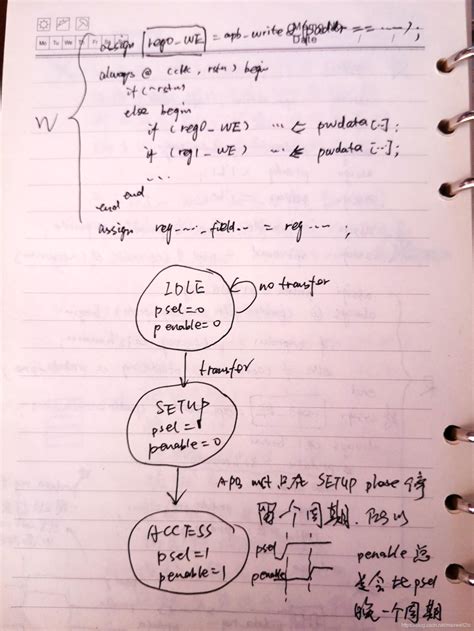 Mo Tu We Th Fr
Date
assign reg0_WE = apb_write & paddr == ----- ;
W
always @ (clk, rstn) begin
if (~rstn)
else begin
if (reg0_WE) ... <= pwdata[...];
if (reg1_WE) ... <= pwdata[...];
...
end
end
assign reg----_field-- = reg---- ;
IDLE
psel=0
penable=0
no transfer
transfer
SETUP
psel=1
penable=0
ACCESS
psel=1
penable=1
APB 只在 SETUP phase 停
留一个周期. 所以
psel
penable
penable 总
是会比psel
晚一个周期